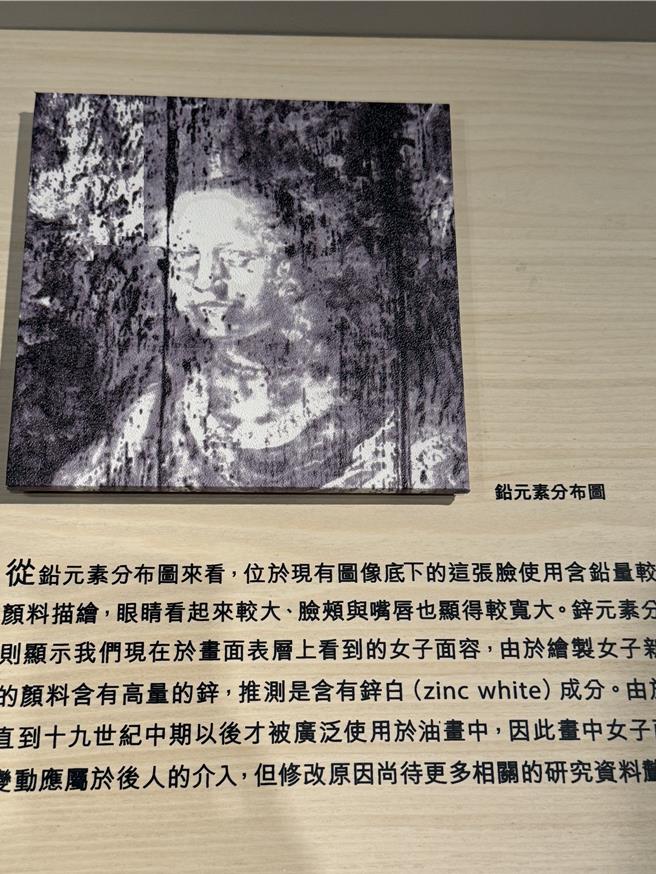 鉛元素分布圖
從鉛元素分布圖來看，位於現有圖像底下的這張臉使用含鉛量較
顏料描繪，眼睛看起來較大、臉頰與嘴唇也顯得較寬大。鋅元素分
則顯示我們現在於畫面表層上看到的女子面容，由於繪製女子新
的顏料含有高量的鋅，推測是含有鋅白（zinc white）成分。由於
直到十九世紀中期以後才被廣泛使用於油畫中，因此畫中女子面
變動應屬於後人的介入，但修改原因尚待更多相關的研究資料